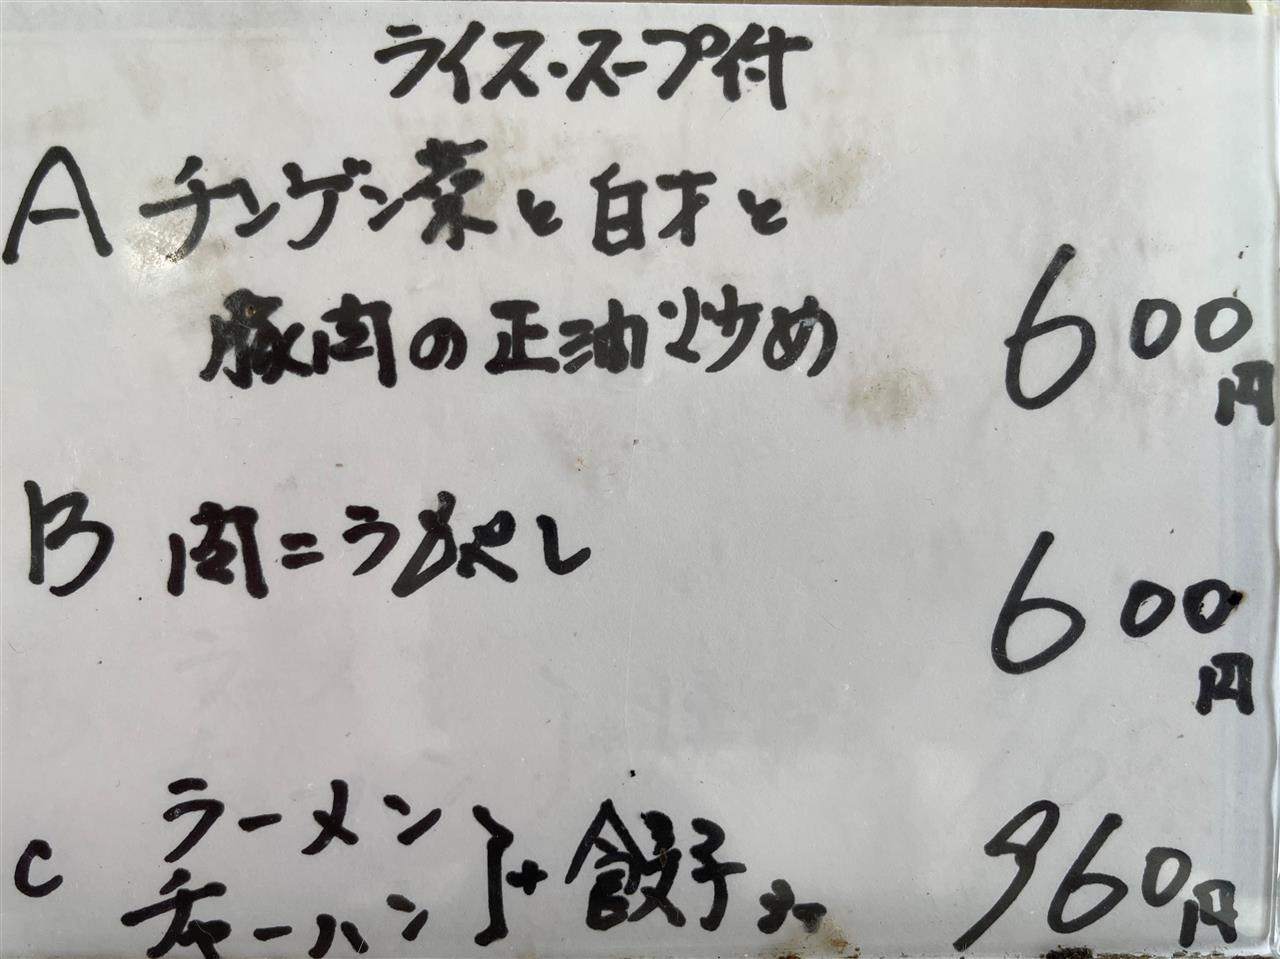 ライス・スープ付
A チンゲン菜と白才と
豚肉の正油炒め 600円
B 肉ニラもやし 600円
C ラーメン
チャーハン }+餃子 960円